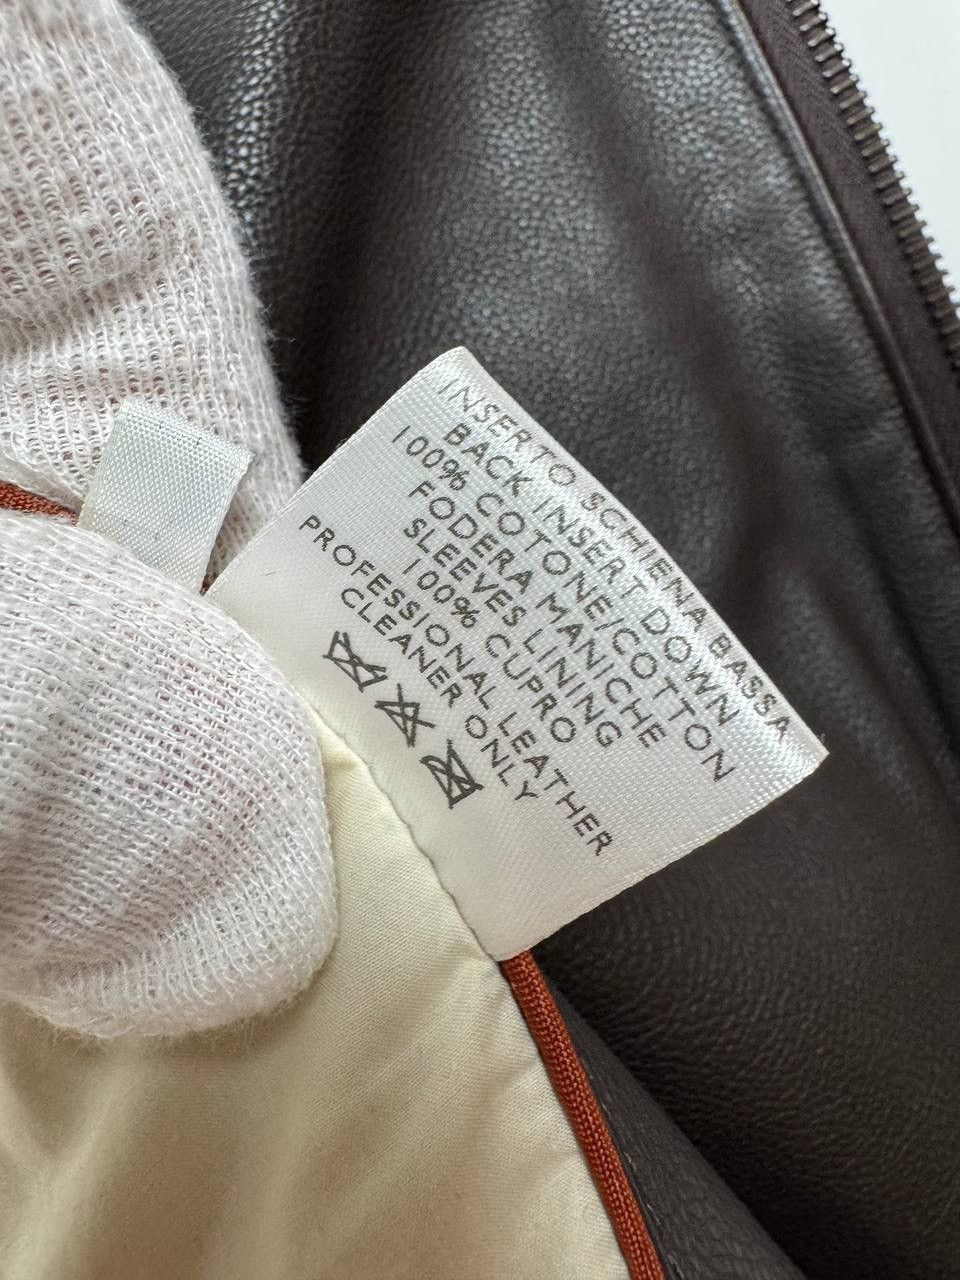 INSERTO SCHIENA BASSA
BACK INSERT DOWN
100% COTONE/COTTON
FODERA MANICHE
SLEEVES LINING
100% CUPRO
PROFESSIONAL LEATHER
CLEANER ONLY